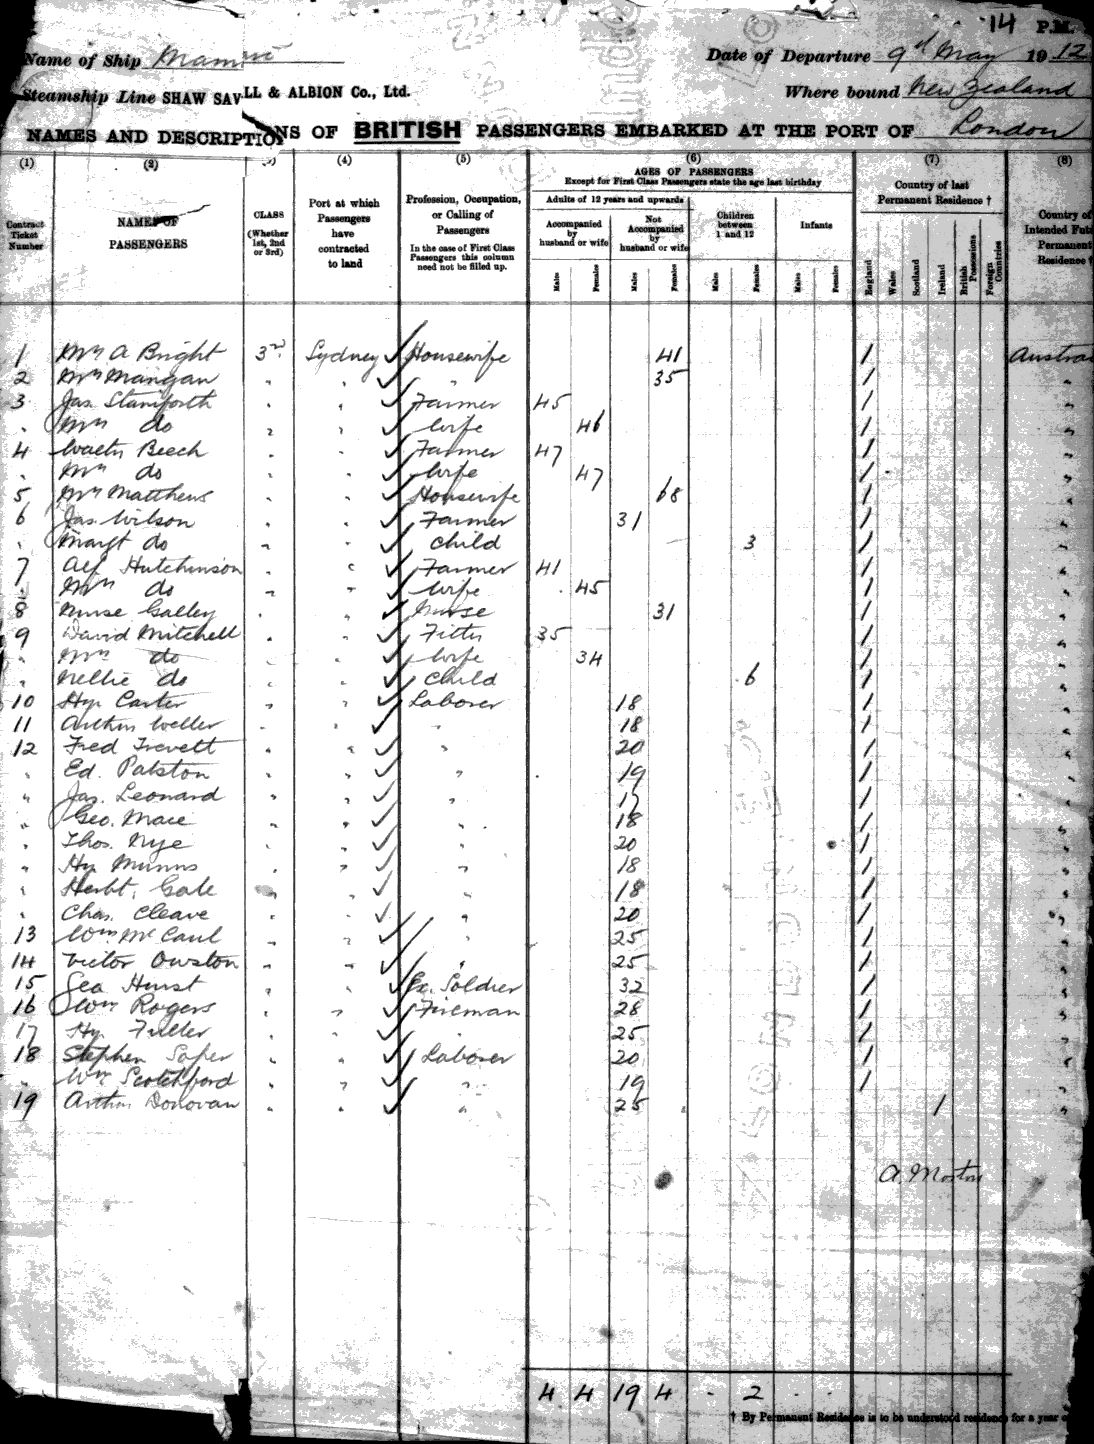 14 P.M.
Name of Ship Mamari Date of Departure 9th May 1912
Steamship Line SHAW SAVILL & ALBION Co., Ltd. Where bound New Zealand
NAMES AND DESCRIPTIONS OF BRITISH PASSENGERS EMBARKED AT THE PORT OF London
(1) (2) (3) (4) (5) (6) (7) (8)
Contract Ticket Number
NAMES OF PASSENGERS
CLASS (Whether 1st, 2nd or 3rd)
Port at which Passengers have contracted to land
Profession, Occupation, or Calling of Passengers
In the case of First Class Passengers this column need not be filled up.
AGES OF PASSENGERS
Except for First Class Passengers state the age last birthday
Adults of 12 years and upwards
Accompanied by husband or wife
Not Accompanied by husband or wife
Children between 1 and 12
Infants
Males Females Males Females Males Females Males Females
Country of last Permanent Residence †
England Wales Scotland Ireland British Possessions Foreign Countries
Country of Intended Fut Permanent Residence †
1 Mrs A Bright 3rd Sydney ✓ Housewife 41 1 Austra
2 Mrs Mangan " " ✓ " 35 1 "
3 Jas. Staniforth " " ✓ Farmer 45 1 "
" Mrs do " " ✓ Wife 46 1 "
4 Walter Beech " " ✓ Farmer 47 1 "
" Mrs do " " ✓ Wife 47 1 "
5 Mrs Matthews " " ✓ Housewife 68 1 "
6 Jas. Wilson " " ✓ Farmer 31 1 "
" Margt do " " ✓ Child 3 1 "
7 Alf Hutchinson " " ✓ Farmer 41 1 "
" Mrs do " " ✓ Wife 45 1 "
8 Nurse Galley " " ✓ Nurse 31 1 "
9 David Mitchell " " ✓ Fitter 35 1 "
" Mrs do " " ✓ Wife 34 1 "
" Nellie do " " ✓ Child 6 1 "
10 Hy. Carter " " ✓ Laborer 18 1 "
11 Arthur Weller " " ✓ " 18 1 "
12 Fred Trevett " " ✓ " 20 1 "
" Ed. Palston " " ✓ " 19 1 "
" Jas. Leonard " " ✓ " 17 1 "
" Geo. Mace " " ✓ " 18 1 "
" Thos. Nye " " ✓ " 20 1 "
" Hy Munns " " ✓ " 18 1 "
" Herbt. Gale " " ✓ " 18 1 "
" Chas. Cleave " " ✓ " 20 1 "
13 Wm. McCaul " " ✓ " 25 1 "
14 Victor Owston " " ✓ " 25 1 "
15 Geo Hurst " " ✓ Ex. Soldier 32 1 "
16 Wm Rogers " " ✓ Fireman 28 1 "
17 Hy. Fuller " " ✓ " 25 1 "
18 Stephen Soper " " ✓ Laborer 20 1 "
" Wm Scotchford " " ✓ " 19 1 "
19 Arthur Donovan " " ✓ " 25 1 "
A. Morton
4 4 19 4 - 2 - -
† By Permanent Residence is to be understood residence for a year o